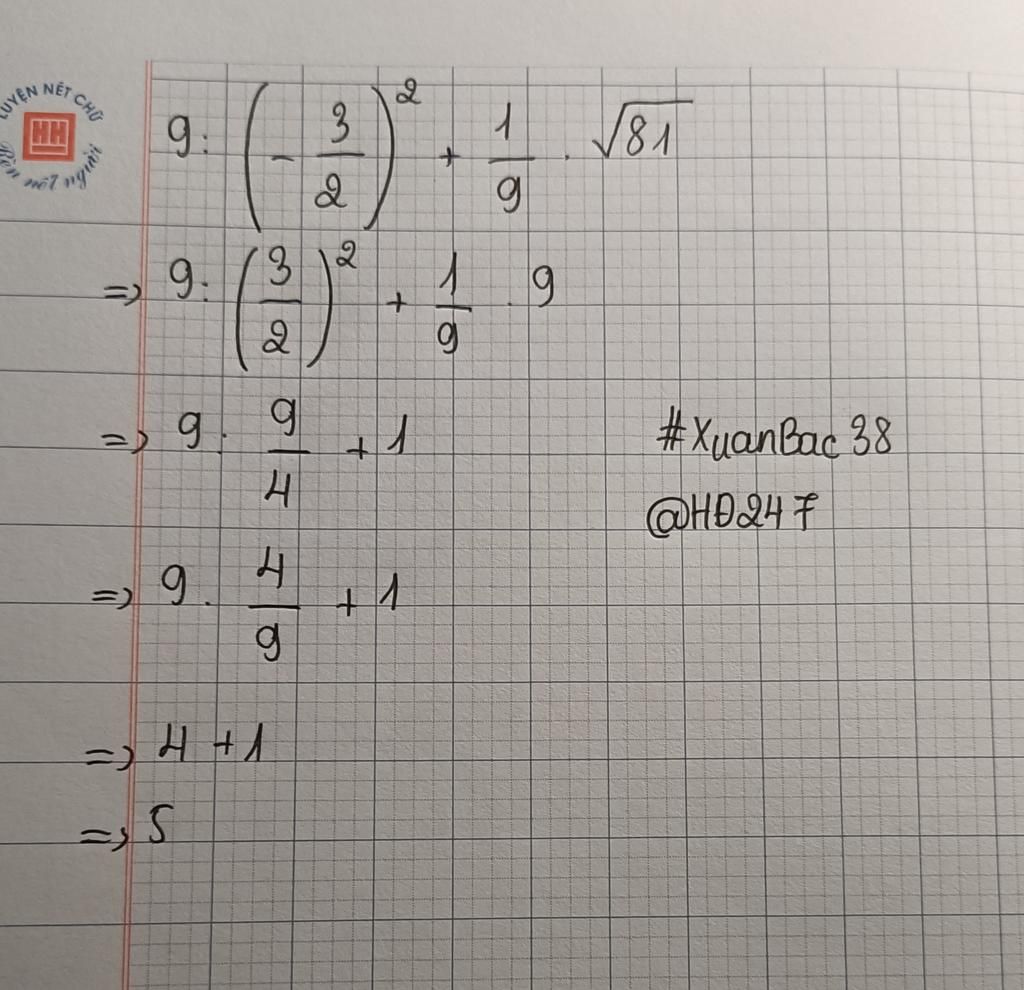 LUYỆN NÉT CHỮ
HH
9 : (- 3/2)² + 1/9 . √81
=> 9 : (3/2)² + 1/9 . 9
=> 9 . 9/4 + 1
#XuanBac 38
@HĐ247
=> 9 . 4/9 + 1
=> 4 + 1
=> 5